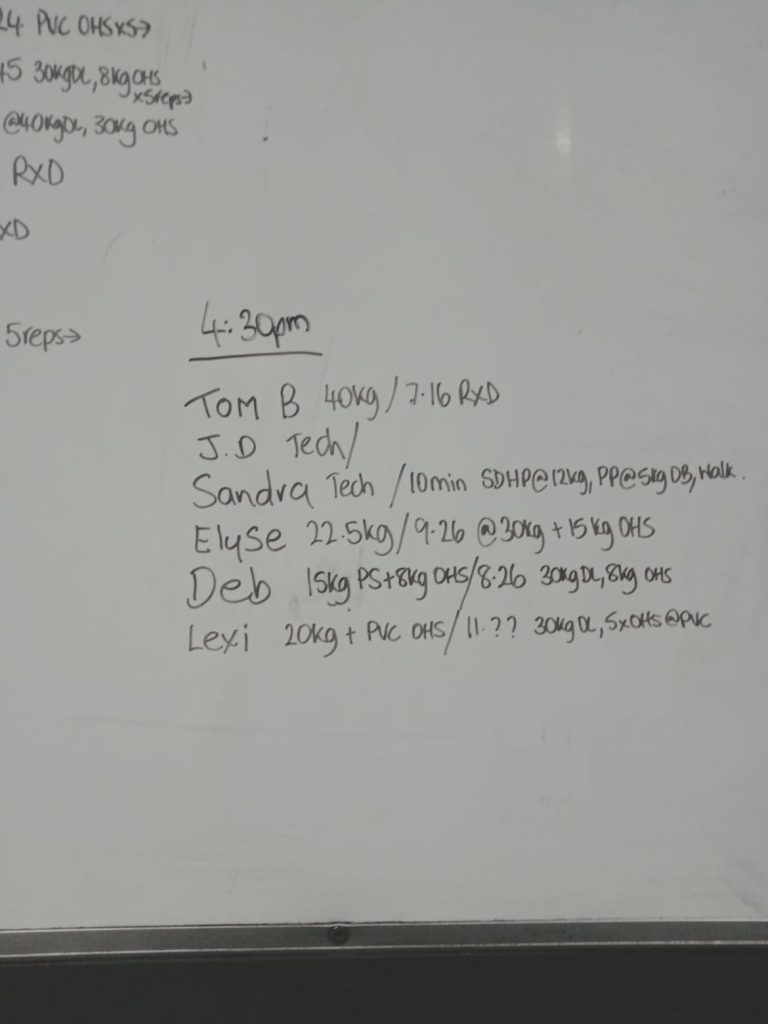 24 PVC OHSx5→
30kgDL, 8kg OHS
x5reps→
@40kgDL, 30kg OHS
RXD
XD
5reps→
4:30pm
Tom B 40kg/7.16 RXD
J.D Tech/
Sandra Tech /10min SDHP@12kg, PP@5kg DB, Walk.
Elyse 22.5kg/9.26 @30kg + 15kg OHS
Deb 15kg PS+8kg OHS/8.26 30kgDL, 8kg OHS
Lexi 20kg + PVC OHS/11.?? 30kgDL, 5xOHS@PVC